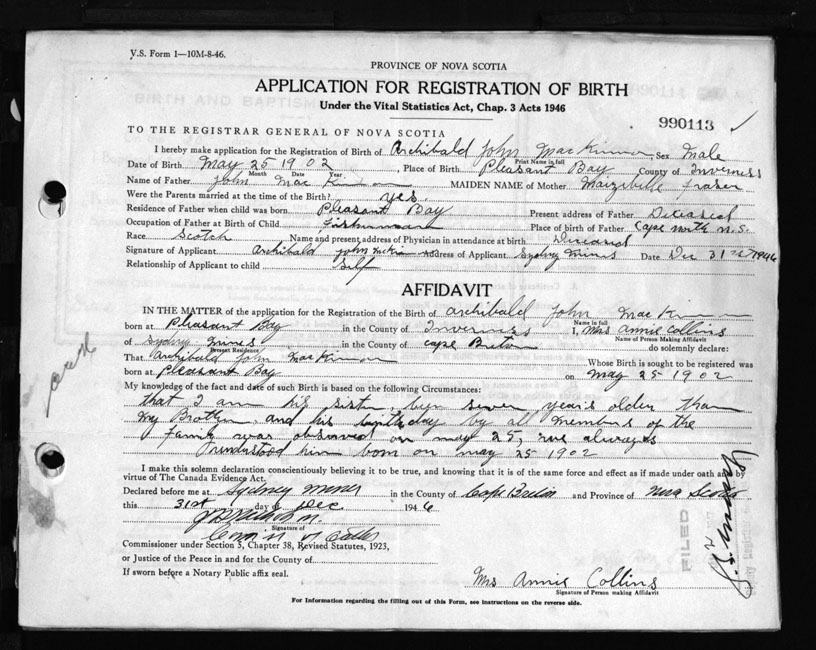 V.S. Form 1—10M-8-46.
PROVINCE OF NOVA SCOTIA
APPLICATION FOR REGISTRATION OF BIRTH
Under the Vital Statistics Act, Chap. 3 Acts 1946
990113
TO THE REGISTRAR GENERAL OF NOVA SCOTIA
I hereby make application for the Registration of Birth of Archibald John MacKinnon Sex Male
Print Name in full
Date of Birth May 25 1902, Place of Birth Pleasant Bay County of Inverness
Month Date Year
Name of Father John MacKinnon MAIDEN NAME of Mother Fraser
Were the Parents married at the time of Birth? yes.
Residence of Father when child was born Pleasant Bay Present address of Father Deceased
Occupation of Father at Birth of Child Fisherman Place of birth of Father Cape North N.S.
Race Scotch Name and present address of Physician in attendance at birth Deceased
Signature of Applicant Archibald John Address of Applicant Sydney Mines Date Dec 31st 1946
Relationship of Applicant to child Self
AFFIDAVIT
IN THE MATTER of the application for the Registration of the Birth of Archibald John MacKinnon
Name in full
born at Pleasant Bay in the County of Inverness I, Mrs Annie Collins
Name of Person Making Affidavit
of Sydney Mines in the County of Cape Breton do solemnly declare:
Present Residence
That Archibald John MacKinnon Whose Birth is sought to be registered was
born at Pleasant Bay on May 25 1902
My knowledge of the fact and date of such Birth is based on the following Circumstances:
that I am his sister, seven years older than
my Brother, and his birthday by all members of the
family was observed on May 25, always
understood him born on May 25 1902
I make this solemn declaration conscientiously believing it to be true, and knowing that it is of the same force and effect as if made under oath and by
virtue of The Canada Evidence Act.
Declared before me at Sydney Mines in the County of Cape Breton and Province of Nova Scotia
this 31st day of Dec 1946
Signature of
Commissioner under Section 5, Chapter 38, Revised Statutes, 1923,
or Justice of the Peace in and for the County of
If sworn before a Notary Public affix seal.
Mrs Annie Collins
Signature of Person making Affidavit
For Information regarding the filling out of this Form, see instructions on the reverse side.
FILED